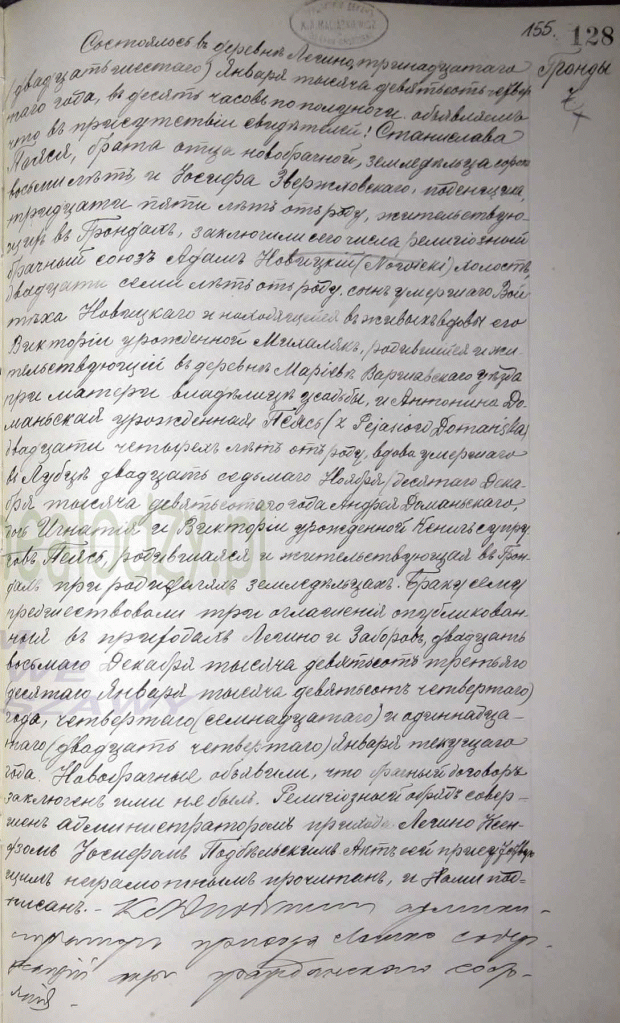 155. 128
Гронды
Состоялось въ деревнѣ Лешно тринадцатаго
(двадцать шестого) Января тысяча девятьсотъ четвер
таго года, въ десять часовъ по полуночи. объявляемъ
что въ присутствіи свидѣтелей: Станислава
Пѣяся, брата отца новобрачной, земледѣльца сорока
восьми лѣтъ, и Іосифа поденщика,
тридцати пяти лѣтъ отъ роду, жительствую-
щихъ въ Грондахъ, заключили сего числа религіозный
брачный союзъ Адамъ Новицкій (Nowicki) холостъ,
двадцати семи лѣтъ отъ роду, сынъ умершаго Вой
тѣха Новицкаго и находящейся въ живыхъ вдовы его
Викторіи урожденной Михалякъ, родившійся и жи-
тельствующій въ деревнѣ Маріевъ Варшавскаго уѣзда
при матери владѣлицѣ усадьбы, и Антонина До-
маньская урожденная Пѣясь (z Pejasiow Domańska)
двадцати четырехъ лѣтъ отъ роду, вдова умершаго
въ двадцать седьмаго Ноября (десятаго Дека-
бря тысяча девятьсотаго года Андрея Доманьскаго,
дочь Игнатія и Викторіи урожденной супру
говъ Пѣясь, родившаяся и жительствующая въ Грон-
дахъ при родителяхъ земледѣльцахъ. Браку сему
предшествовали три оглашенія опубликован-
ныя въ приходахъ Лешно и Заборовъ, двадцать
восьмаго Декабря тысяча девятьсотъ третьяго
десятаго Января тысяча девятьсотъ четвертаго)
года, четвертаго (семнадцатаго) и одиннадца-
таго (двадцать четвертаго) Января текущаго
года. Новобрачные объявили, что брачный договоръ
заключенъ ими не былъ. Религіозный обрядъ совер-
шенъ администраторомъ прихода Лешно Ксен-
дзомъ Іосифомъ Подбѣльскимъ. Актъ сей присутствую
щимъ неграмотнымъ прочитанъ, и Нами под-
писанъ. –
администраторъ прихода Лешно содер-
жащій акты гражданскаго состо-
янія.